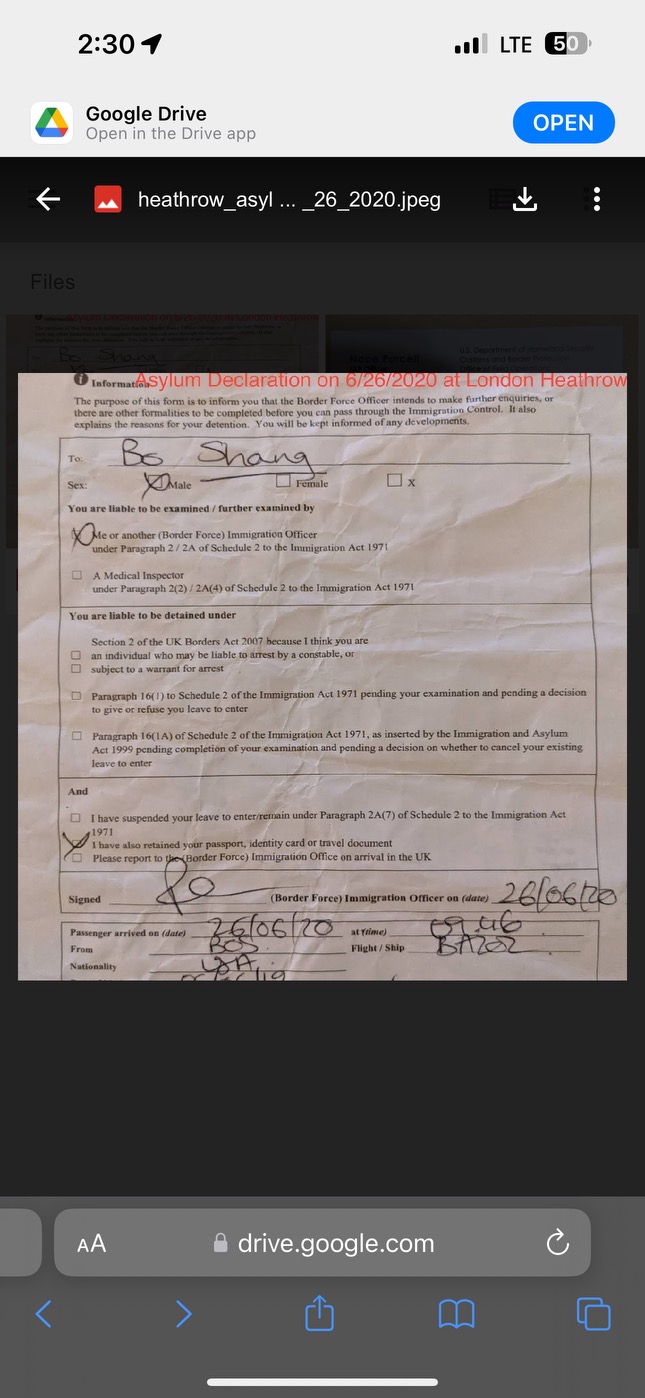 2:30
LTE 50
Google Drive
Open in the Drive app
OPEN
heathrow_asyl ... _26_2020.jpeg
Files
Asylum Declaration on 6/26/2020 at London Heathrow
The purpose of this form is to inform you that the Border Force Officer intends to make further enquiries, or
there are other formalities to be completed before you can pass through the Immigration Control. It also
explains the reasons for your detention. You will be kept informed of any developments.
To: Bo Shang
Sex: Male Female X
You are liable to be examined / further examined by
Me or another (Border Force) Immigration Officer
under Paragraph 2 / 2A of Schedule 2 to the Immigration Act 1971
A Medical Inspector
under Paragraph 2(2) / 2A(4) of Schedule 2 to the Immigration Act 1971
You are liable to be detained under
Section 2 of the UK Borders Act 2007 because I think you are
an individual who may be liable to arrest by a constable, or
subject to a warrant for arrest
Paragraph 16(1) to Schedule 2 of the Immigration Act 1971 pending your examination and pending a decision
to give or refuse you leave to enter
Paragraph 16(1A) of Schedule 2 of the Immigration Act 1971, as inserted by the Immigration and Asylum
Act 1999 pending completion of your examination and pending a decision on whether to cancel your existing
leave to enter
And
I have suspended your leave to enter/remain under Paragraph 2A(7) of Schedule 2 to the Immigration Act
1971
I have also retained your passport, identity card or travel document
Please report to the (Border Force) Immigration Office on arrival in the UK
Signed (Border Force) Immigration Officer on (date) 26/06/20
Passenger arrived on (date) 26/06/20 at (time) 09.46
From BOS Flight / Ship BA202
Nationality USA
AA drive.google.com